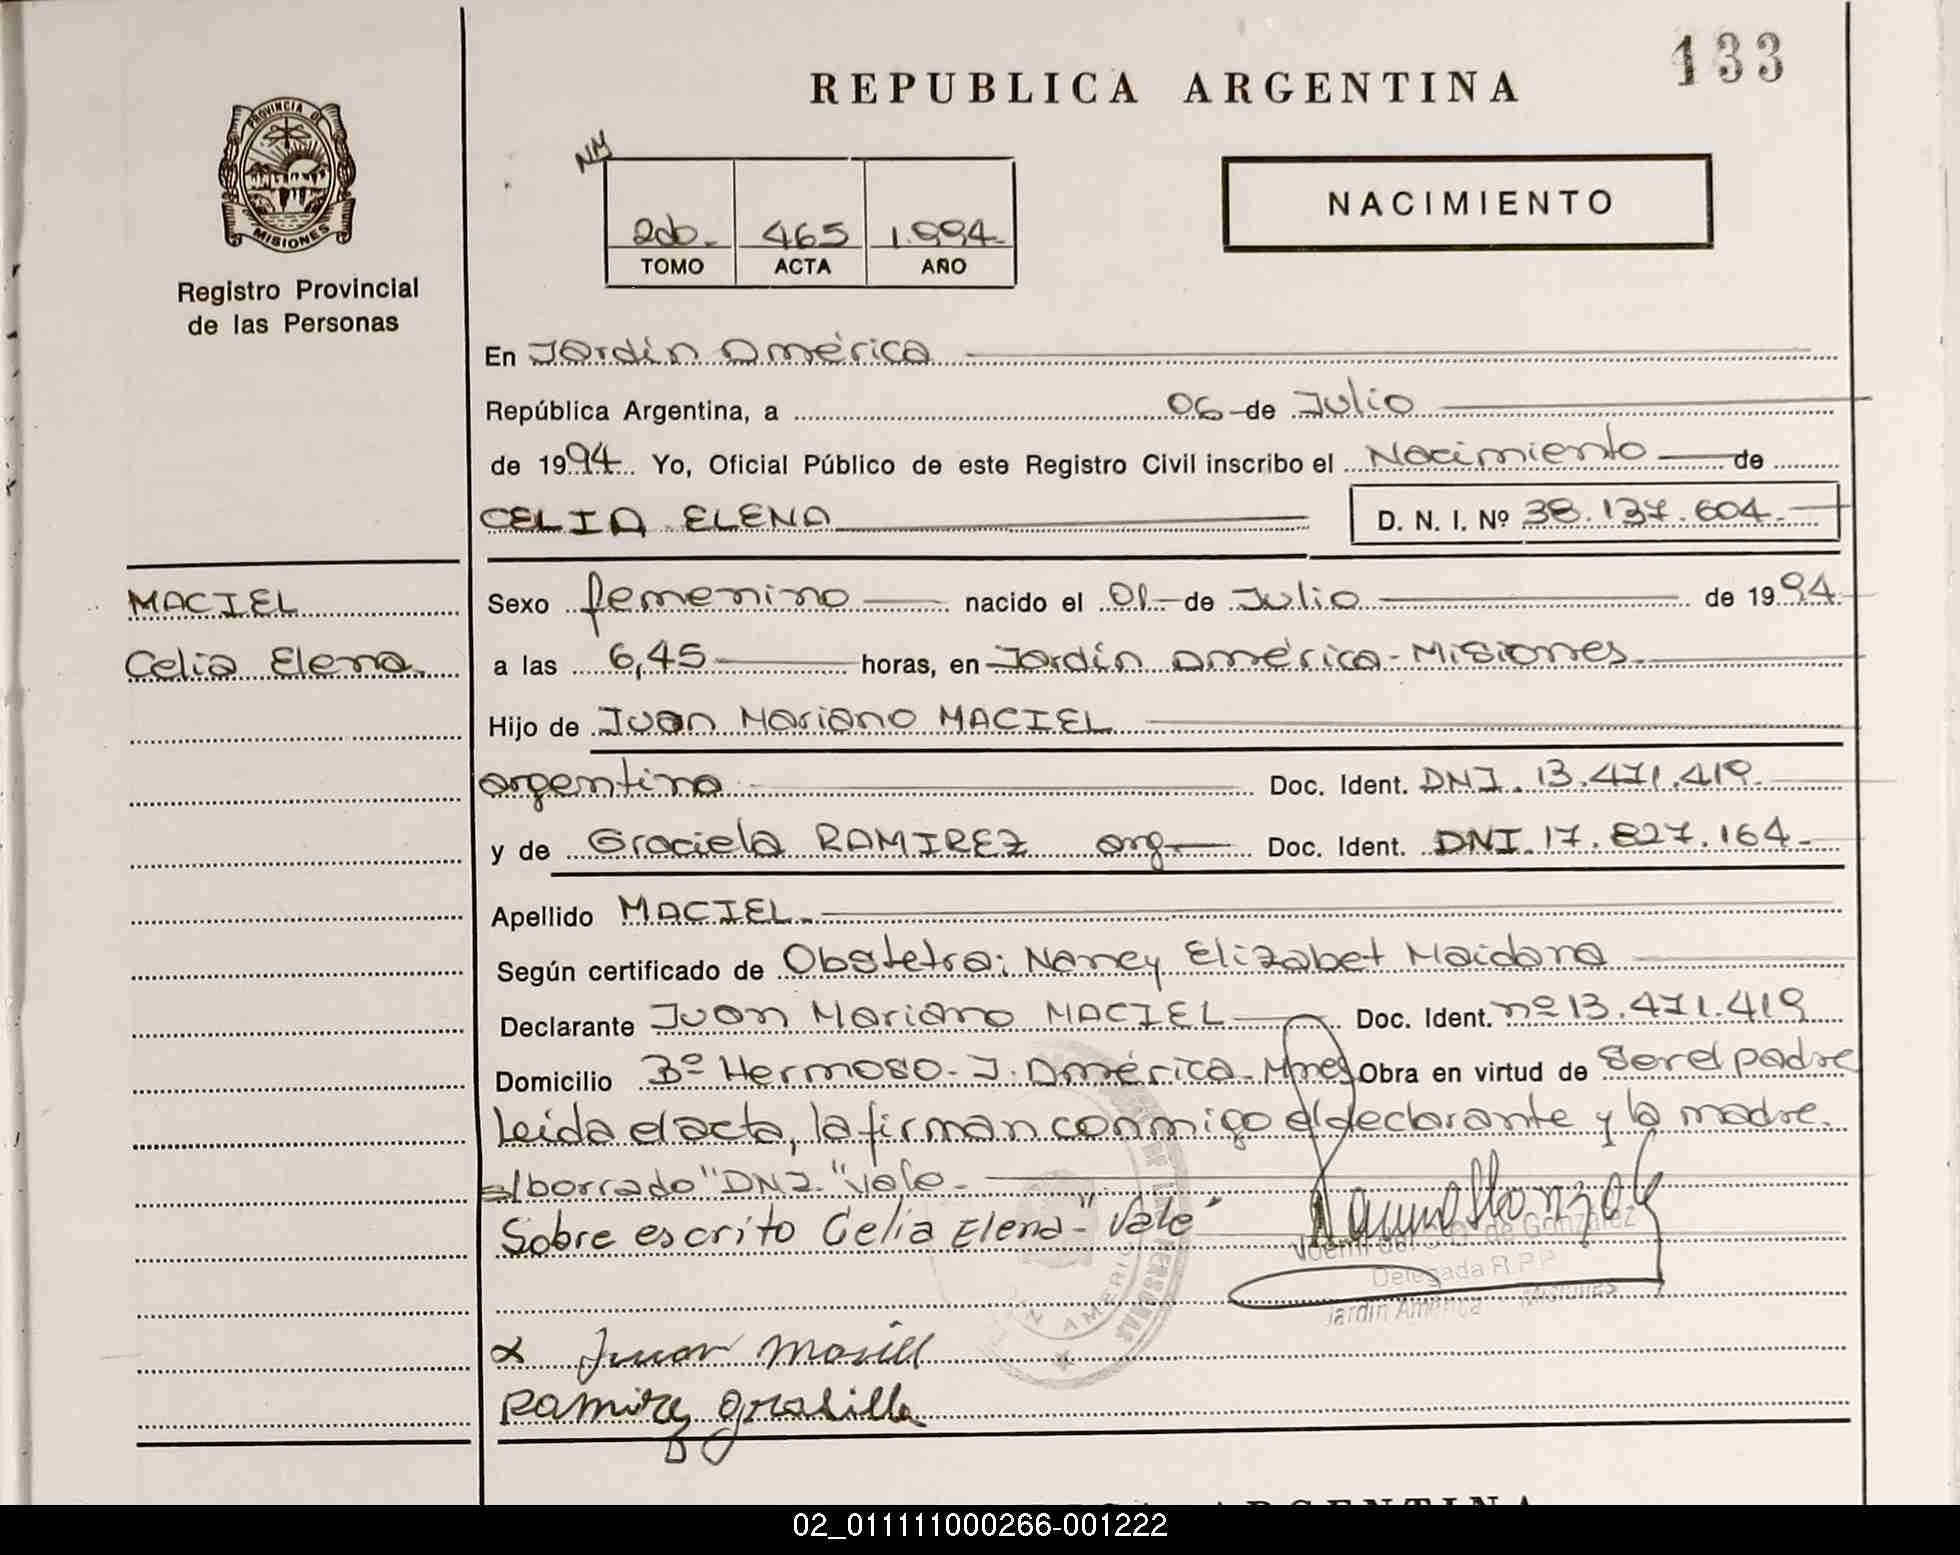 133
REPUBLICA ARGENTINA
PROVINCIA DE
MISIONES
Registro Provincial
de las Personas
NM
2do. 465 1.994
TOMO ACTA AÑO
NACIMIENTO
En Jardín América
República Argentina, a 06 de Julio
de 1994 Yo, Oficial Público de este Registro Civil inscribo el Nacimiento de
CELIA ELENA D. N. I. Nº 38.137.604.-
MACIEL
Celia Elena.
Sexo femenino nacido el 01 de Julio de 1994
a las 6,45 horas, en Jardín América-Misiones
Hijo de Juan Mariano MACIEL
argentino Doc. Ident. DNI. 13.471.419.
y de Graciela RAMIREZ arg. Doc. Ident. DNI. 17.827.164.-
Apellido MACIEL.
Según certificado de Obstetra: Nancy Elizabet Maidana
Declarante Juan Mariano MACIEL Doc. Ident. nº 13.471.419
Domicilio Bº Hermoso-J. América-Mnes Obra en virtud de Ser el padre
Leída el acta, la firman conmigo el declarante y la madre.
el borrado "DNI." Vale.
Sobre escrito Celia Elena" Vale"
de Gonzalez
Delegada R.P.P
Jardín América Misiones
Juan Masiel
Ramirez grasilla
ARGENTINA
02_011111000266-001222